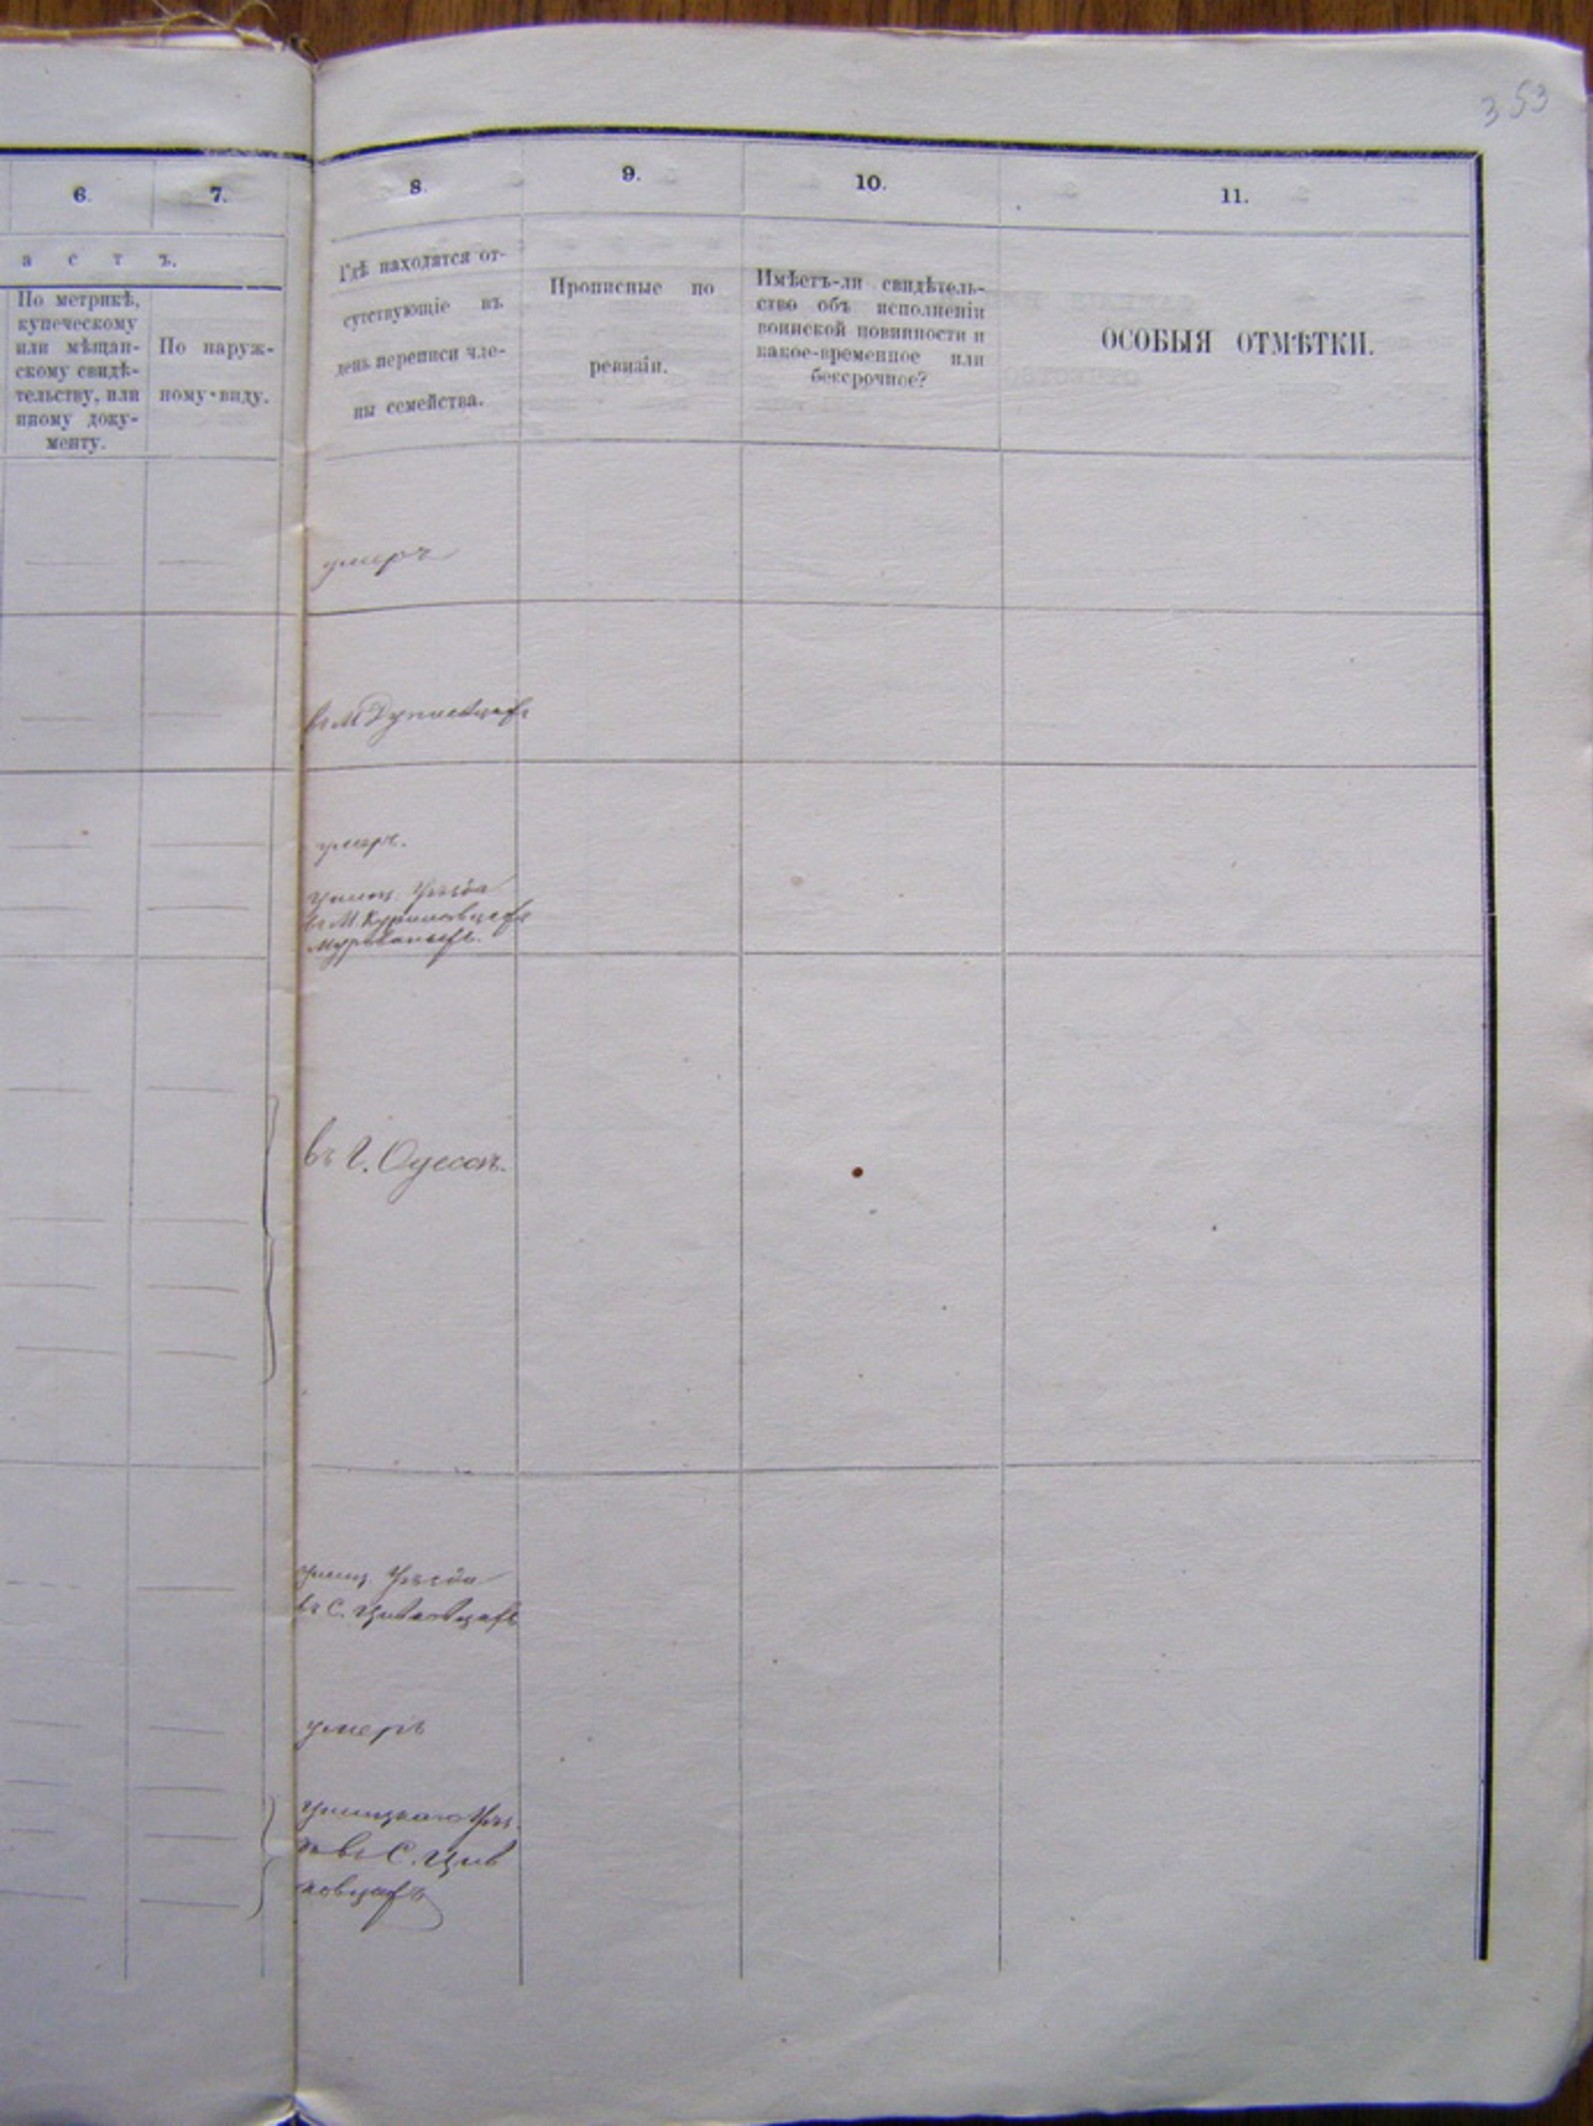 353
6.
7.
8.
9.
10.
11.
а с т ъ.
По метрикѣ,
купеческому
или мѣщан-
скому свидѣ-
тельству, или
иному доку-
менту.
По наруж-
ному виду.
Гдѣ находятся от-
сутствующіе въ
день переписи чле-
ны семейства.
Прописные по
ревизіи.
Имѣетъ-ли свидѣтель-
ство объ исполненіи
воинской повинности и
какое-временное или
безсрочное?
ОСОБЫЯ ОТМѢТКИ.
умеръ
въ М
умеръ.
Ушиц. Уѣзда
въ М. Куриловцахъ
Мурованыхъ.
въ г. Одессѣ.
Ушиц. Уѣзда
въ С.
умеръ
Ушицкаго Уѣз.
въ С.